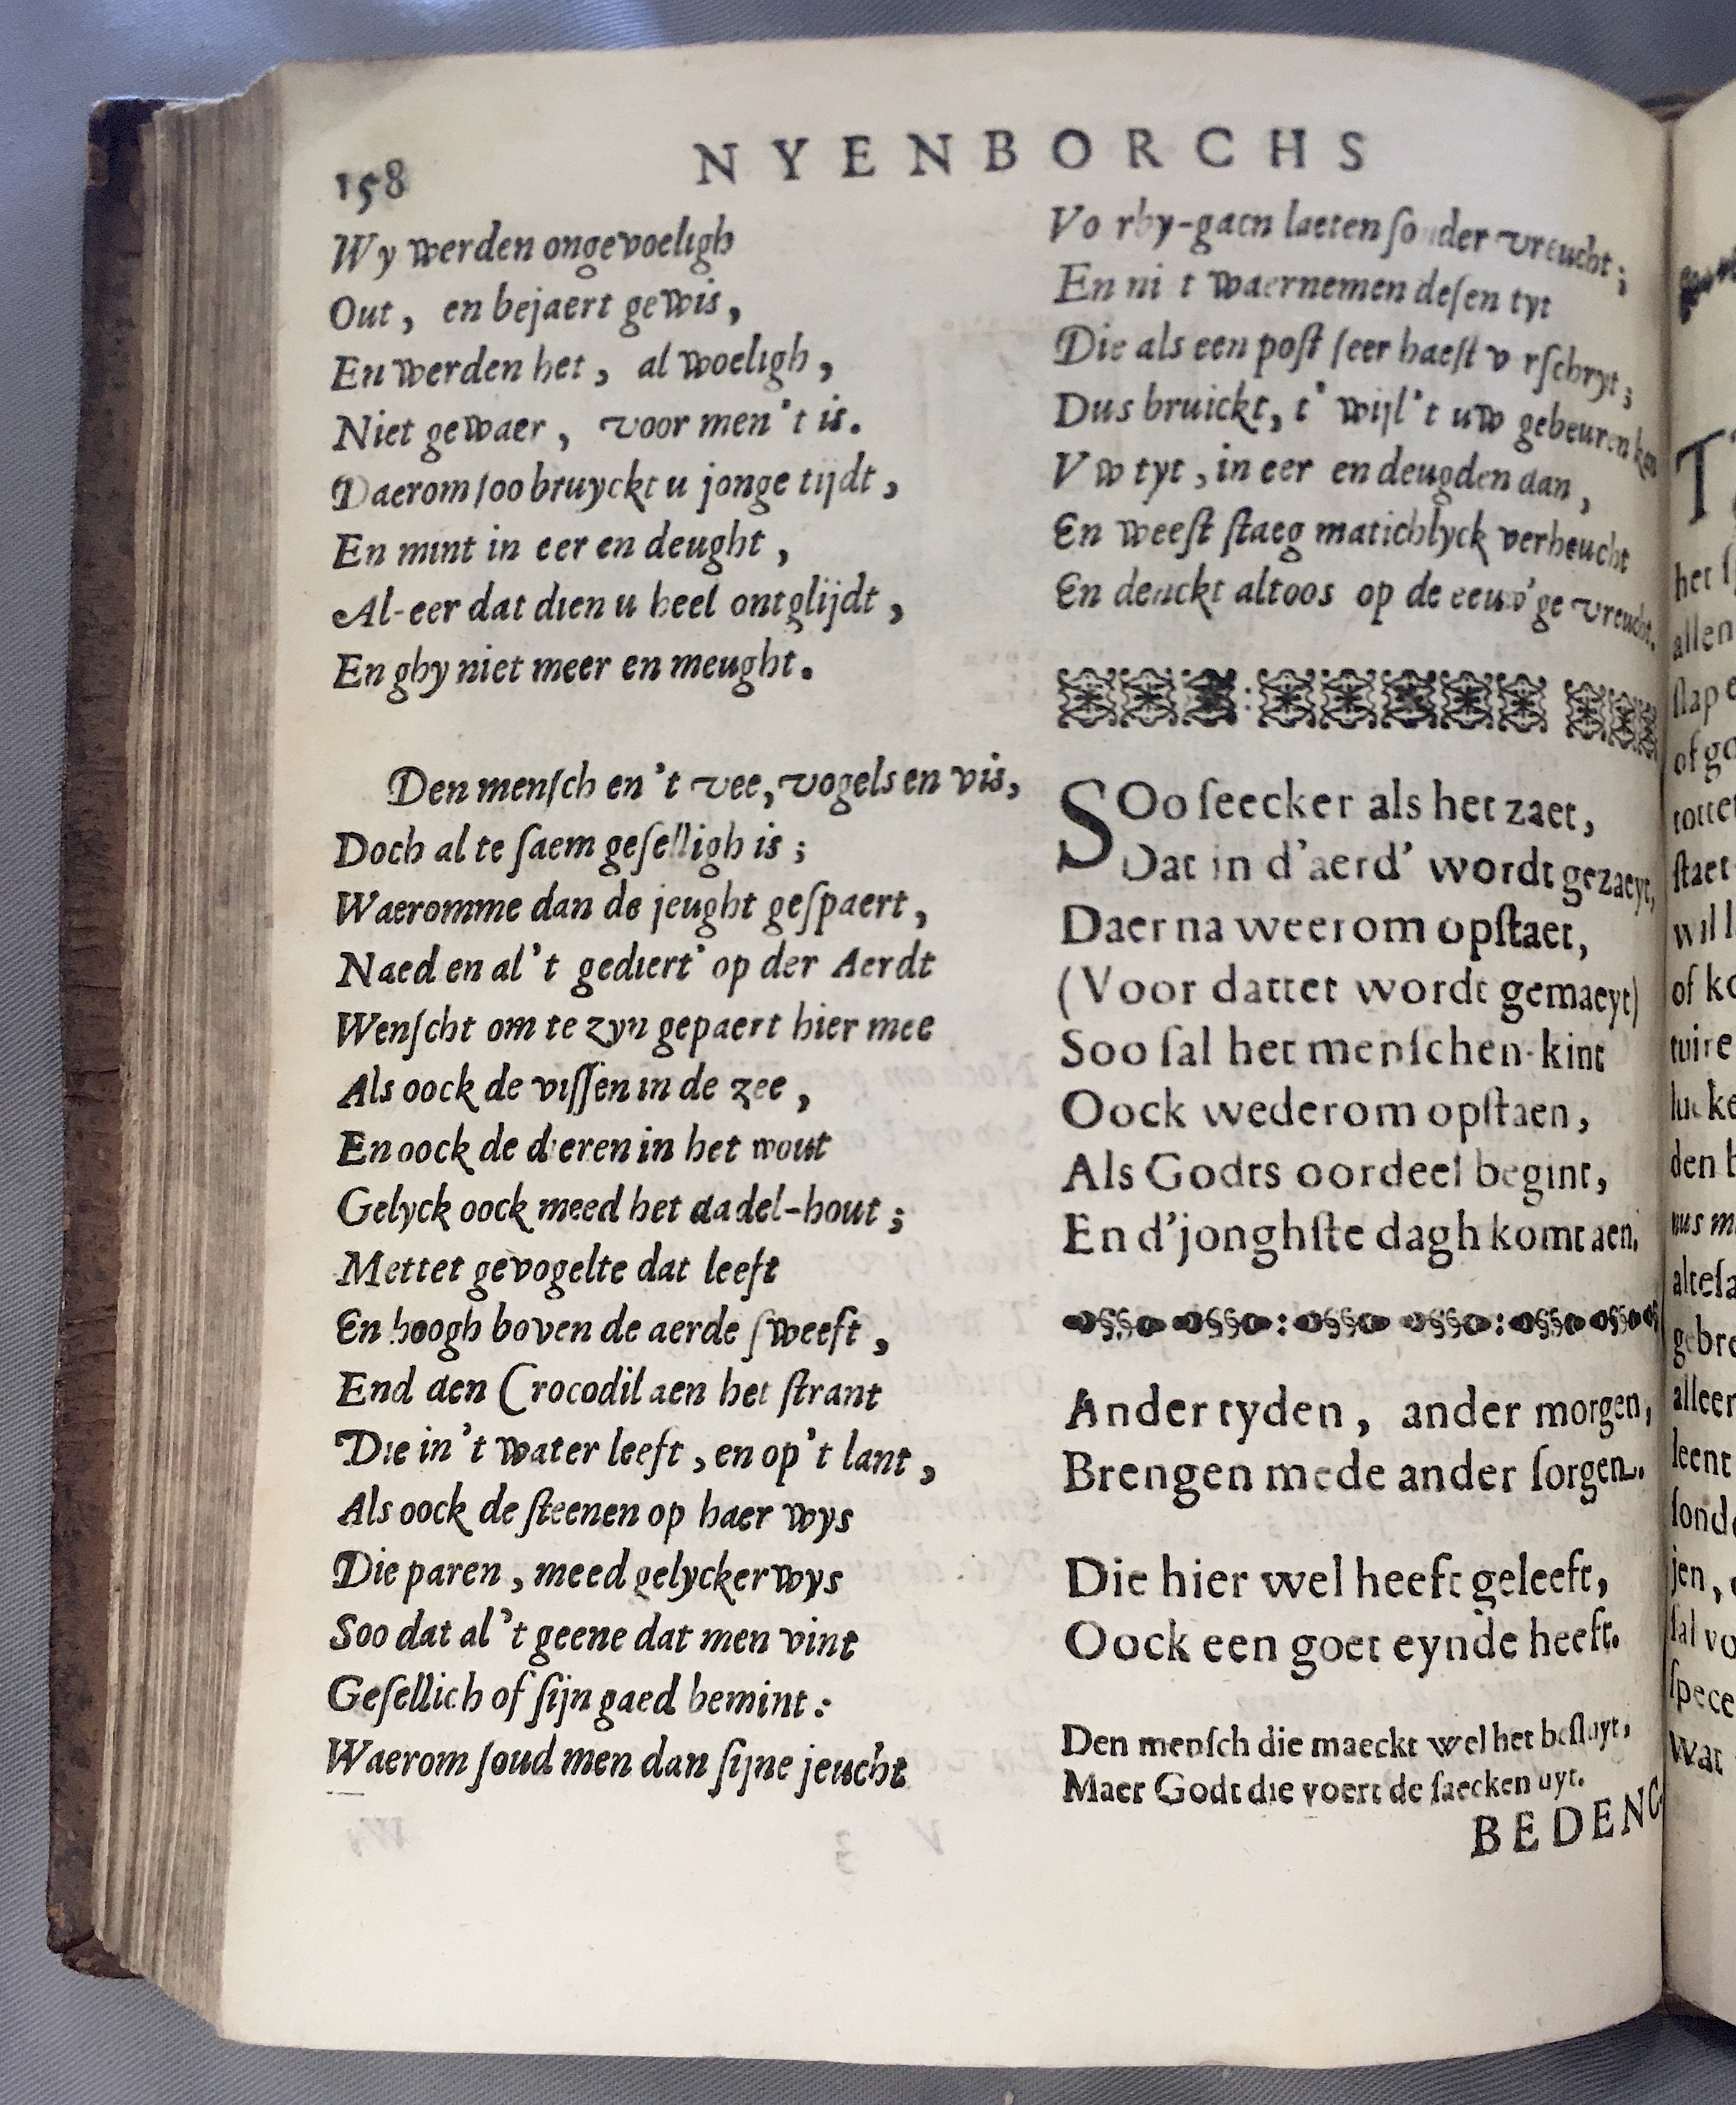 158
NYENBORCHS
Wy werden ongevoeligh
Out, en bejaert gewis,
En werden het, al woeligh,
Niet gewaer, voor men't is.
Daerom ſoo bruyckt u jonge tijdt,
En mint in eer en deught,
Al-eer dat dien u heel ontglijdt,
En ghy niet meer en meught.
Den menſch en't vee, vogels en vis,
Doch al te ſaem geſelligh is;
Waeromme dan de jeught geſpaert,
Naed en al't gediert' op der Aerdt
Wenſcht om te zyn gepaert hier mee
Als oock de viſſen in de zee,
En oock de dieren in het wout
Gelyck oock meed het dadel-hout;
Mettet gevogelte dat leeft
En hoogh boven de aerde ſweeft,
End den Crocodil aen het ſtrant
Die in't water leeft, en op't lant,
Als oock de ſteenen op haer wys
Die paren, meed gelyckerwys
Soo dat al't geene dat men vint
Geſellich of ſijn gaed bemint:
Waerom ſoud men dan ſijne jeucht
Vo rby-gaen laeten ſo der vreucht;
En ni t waernemen deſen tyt
Die als een poſt ſeer haeſt v rſchryt;
Dus bruickt, t' wijl't uw gebeuren kan
Vw tyt, in eer en deugden dan,
En weeſt ſtaeg matichlyck verheucht
En denckt altoos op de eeuw'ge vreucht.
SOo ſeecker als het zaet,
Dat in d'aerd' wordt gezaeyt,
Daer na weerom opſtaet,
(Voor dattet wordt gemaeyt)
Soo ſal het menſchen-kint
Oock wederom opſtaen,
Als Godts oordeel begint,
En d'jonghſte dagh komt aen.
Ander tyden, ander morgen,
Brengen mede ander ſorgen.
Die hier wel heeft geleeft,
Oock een goet eynde heeft.
Den menſch die maeckt wel het beſluyt,
Maer Godt die voert de ſaecken uyt.
BEDENC
T
het
allen
ſlap
of go
tottet
ſtaet
wil
of ko
tuire
lucke
den
alteſa
gebre
alleen
leent
ſonde
jen,
ſal vo
ſpece
Wat